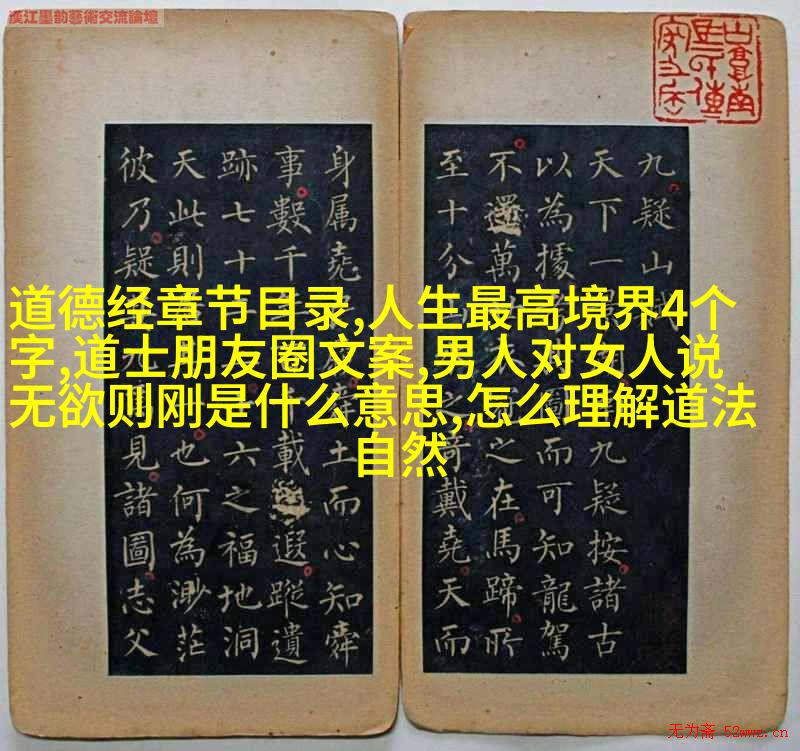 漢江墨韵藝術交流論壇
道德经章节目录,人生最高境界4个
字,道士朋友圈文案,男人对女人说
无欲则刚是什么意思,怎么理解道法
自然
九疑山
天下一九疑按諸古
以為據圖而可知龍駕
不還萬之在馬蹄所
至十分之奇戴堯天而
身属堯土而心知舜
事數千載遐蹤遺
跡七十六之福地洞
天此則也何為渺茫
彼乃疑見諸圖志父
无为斋 52wwz.cn